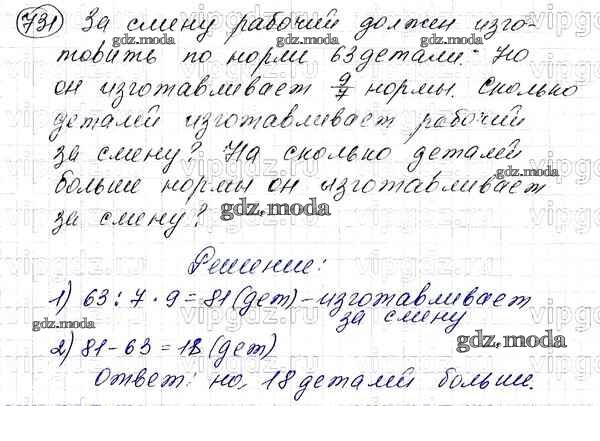 731 За смену рабочий должен изго-
товить по норме 63 детали. Но
он изготавливает 9/7 нормы. Сколько
деталей изготавливает рабочий
за смену? На сколько деталей
больше нормы он изготавливает
за смену?
Решение:
1) 63 : 7 · 9 = 81 (дет) - изготавливает
за смену
2) 81 - 63 = 18 (дет)
Ответ: на 18 деталей больше.
gdz.moda
gdz.moda
gdz.moda
gdz.moda
gdz.moda
gdz.moda
gdz.moda
gdz.moda
vipgdz.ru